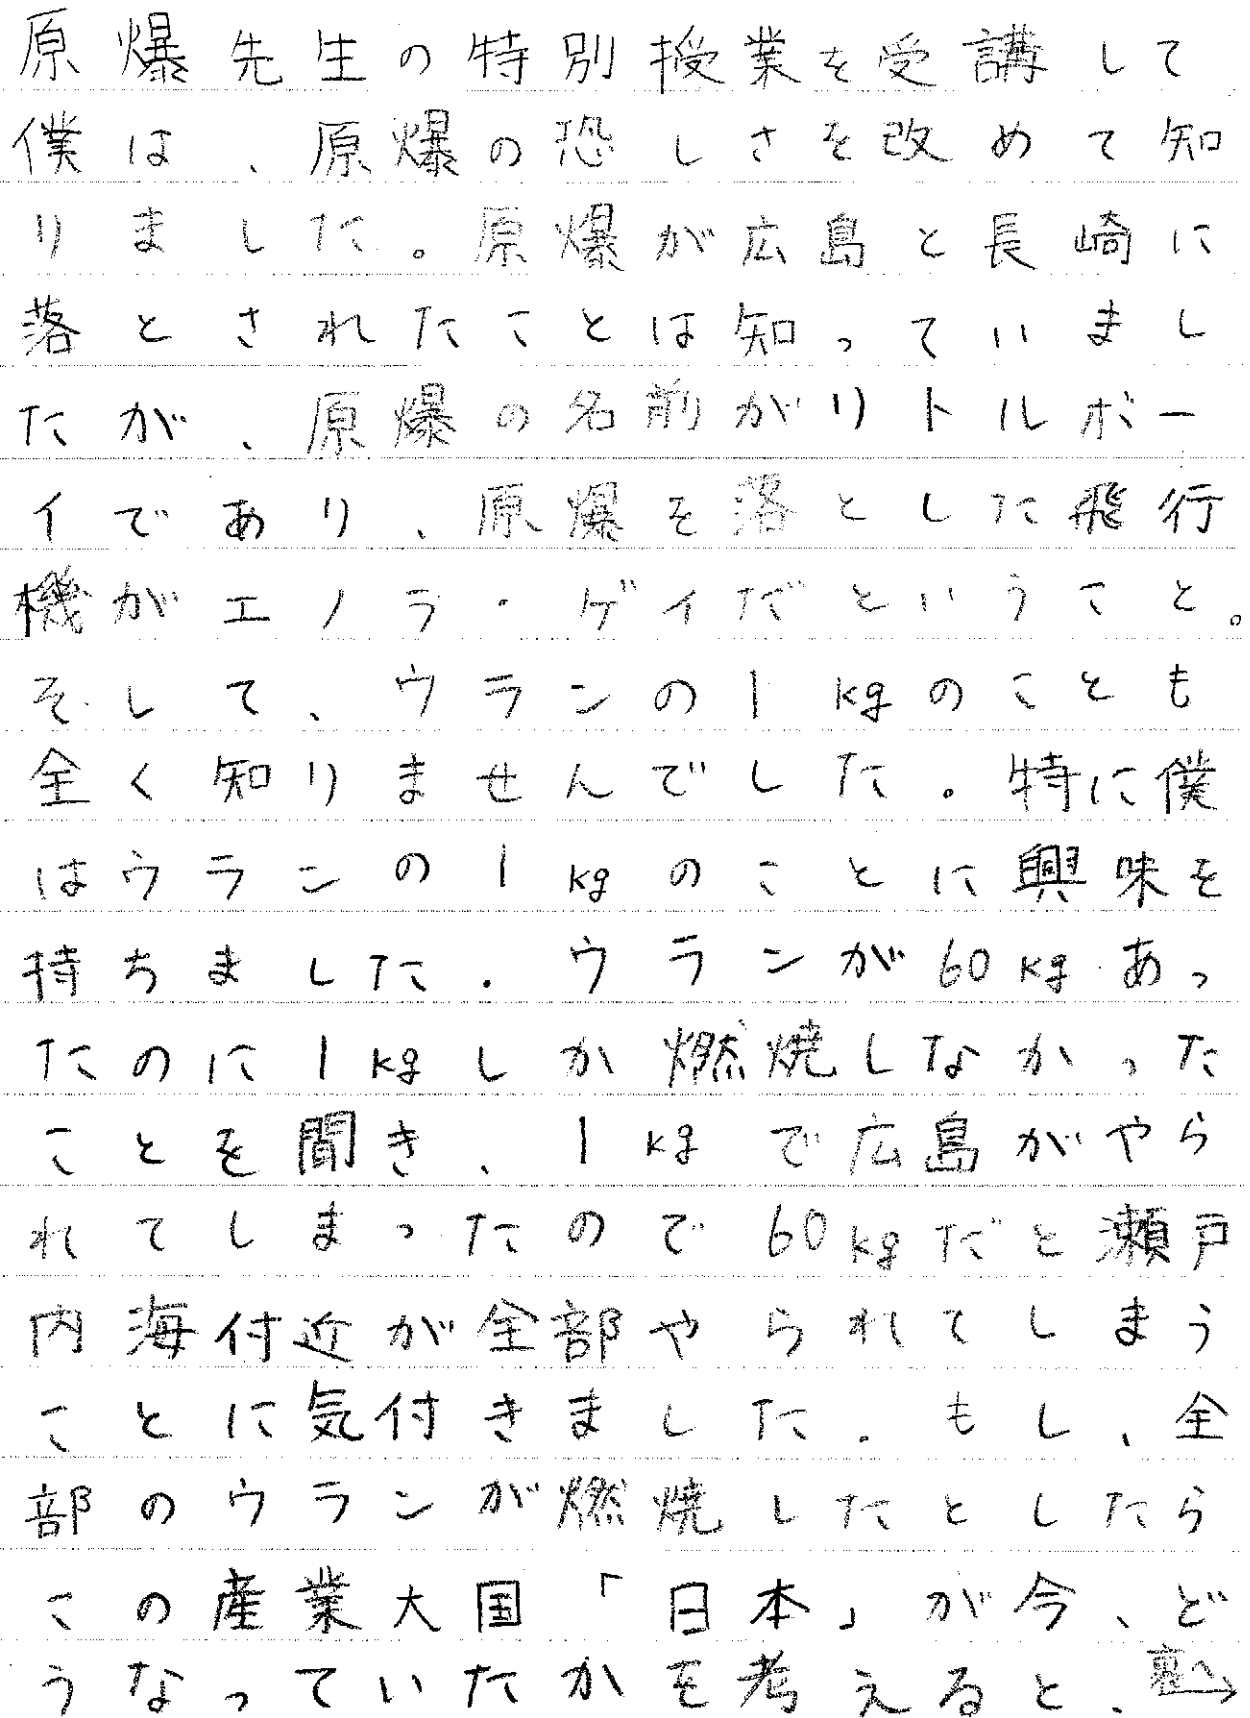 原爆先生の特別授業を受講して
僕は、原爆の恐しさを改めて知
りました。原爆が広島と長崎に
落とされたことは知っていまし
たが、原爆の名前がリトルボー
イであり、原爆を落とした飛行
機がエノラ・ゲイだということ。
そして、ウランの1kgのことも
全く知りませんでした。特に僕
はウランの1kgのことに興味を
持ちました。ウランが60kgあっ
たのに1kgしか燃焼しなかった
ことを聞き、1kgで広島がやら
れてしまったので60kgだと瀬戸
内海付近が全部やられてしまう
ことに気付きました。もし、全
部のウランが燃焼したとしたら
この産業大国「日本」が今、ど
うなっていたかを考えると、裏へ→